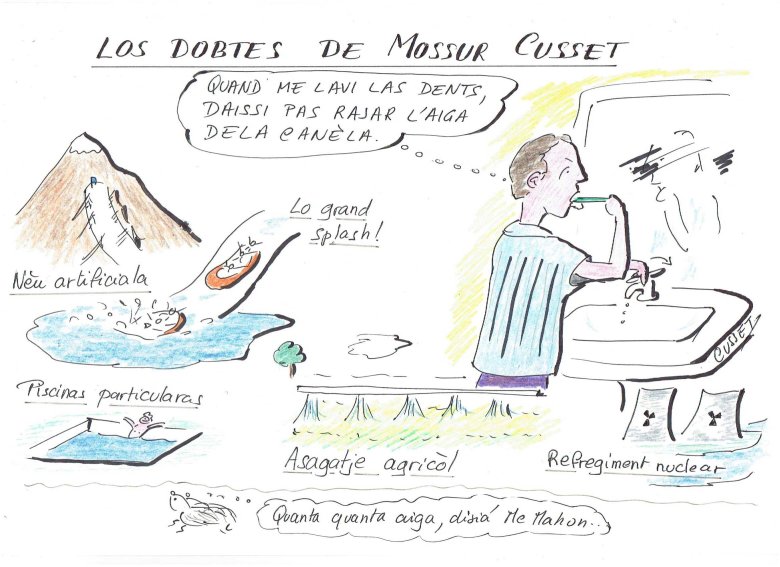 LOS DOBTES DE MOSSUR CUSSET
QUAND ME LAVI LAS DENTS,
DAISSI PAS RAJAR L'AIGA
DE LA CANÈLA.
Lo grand
splash!
Nèu artificiala
CUSSET
Piscinas particularas
Asagatje agricòl
Refregiment nuclear
Quanta quanta aiga, disiá Mc Mahon...